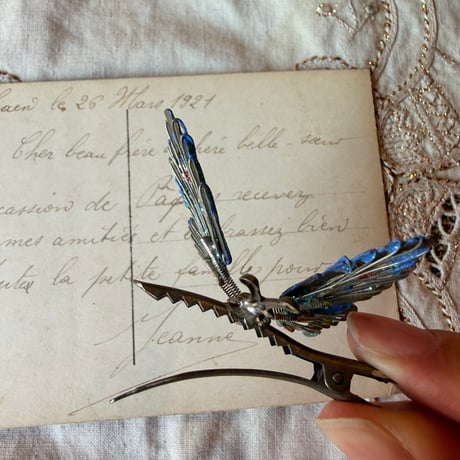 Caen le 26 Mars 1921
Cher beau frère chère belle-sœur
occasion de Pâques recevez
mes amitiés et embrassez bien
toutes la petite famille pour
Jeanne